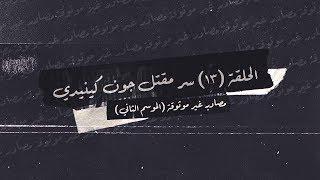 الحلقة (١٣) سر مقتل جون كينيدي
مصادر غير موثوقة (الموسم الثاني)